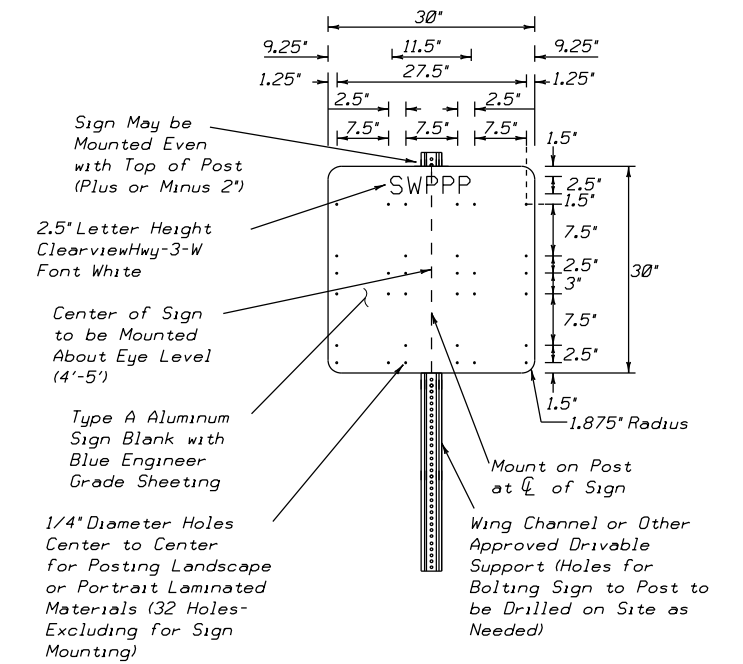 30"
9.25" 11.5" 9.25"
1.25" 27.5" 1.25"
2.5" 2.5"
7.5" 7.5" 7.5"
1.5"
2.5"
1.5"
7.5"
2.5"
3"
7.5"
2.5"
1.5"
30"
SWPPP
Sign May be
Mounted Even
with Top of Post
(Plus or Minus 2")
2.5" Letter Height
ClearviewHwy-3-W
Font White
Center of Sign
to be Mounted
About Eye Level
(4'-5')
Type A Aluminum
Sign Blank with
Blue Engineer
Grade Sheeting
1/4" Diameter Holes
Center to Center
for Posting Landscape
or Portrait Laminated
Materials (32 Holes-
Excluding for Sign
Mounting)
1.875" Radius
Mount on Post
at ℄ of Sign
Wing Channel or Other
Approved Drivable
Support (Holes for
Bolting Sign to Post to
be Drilled on Site as
Needed)